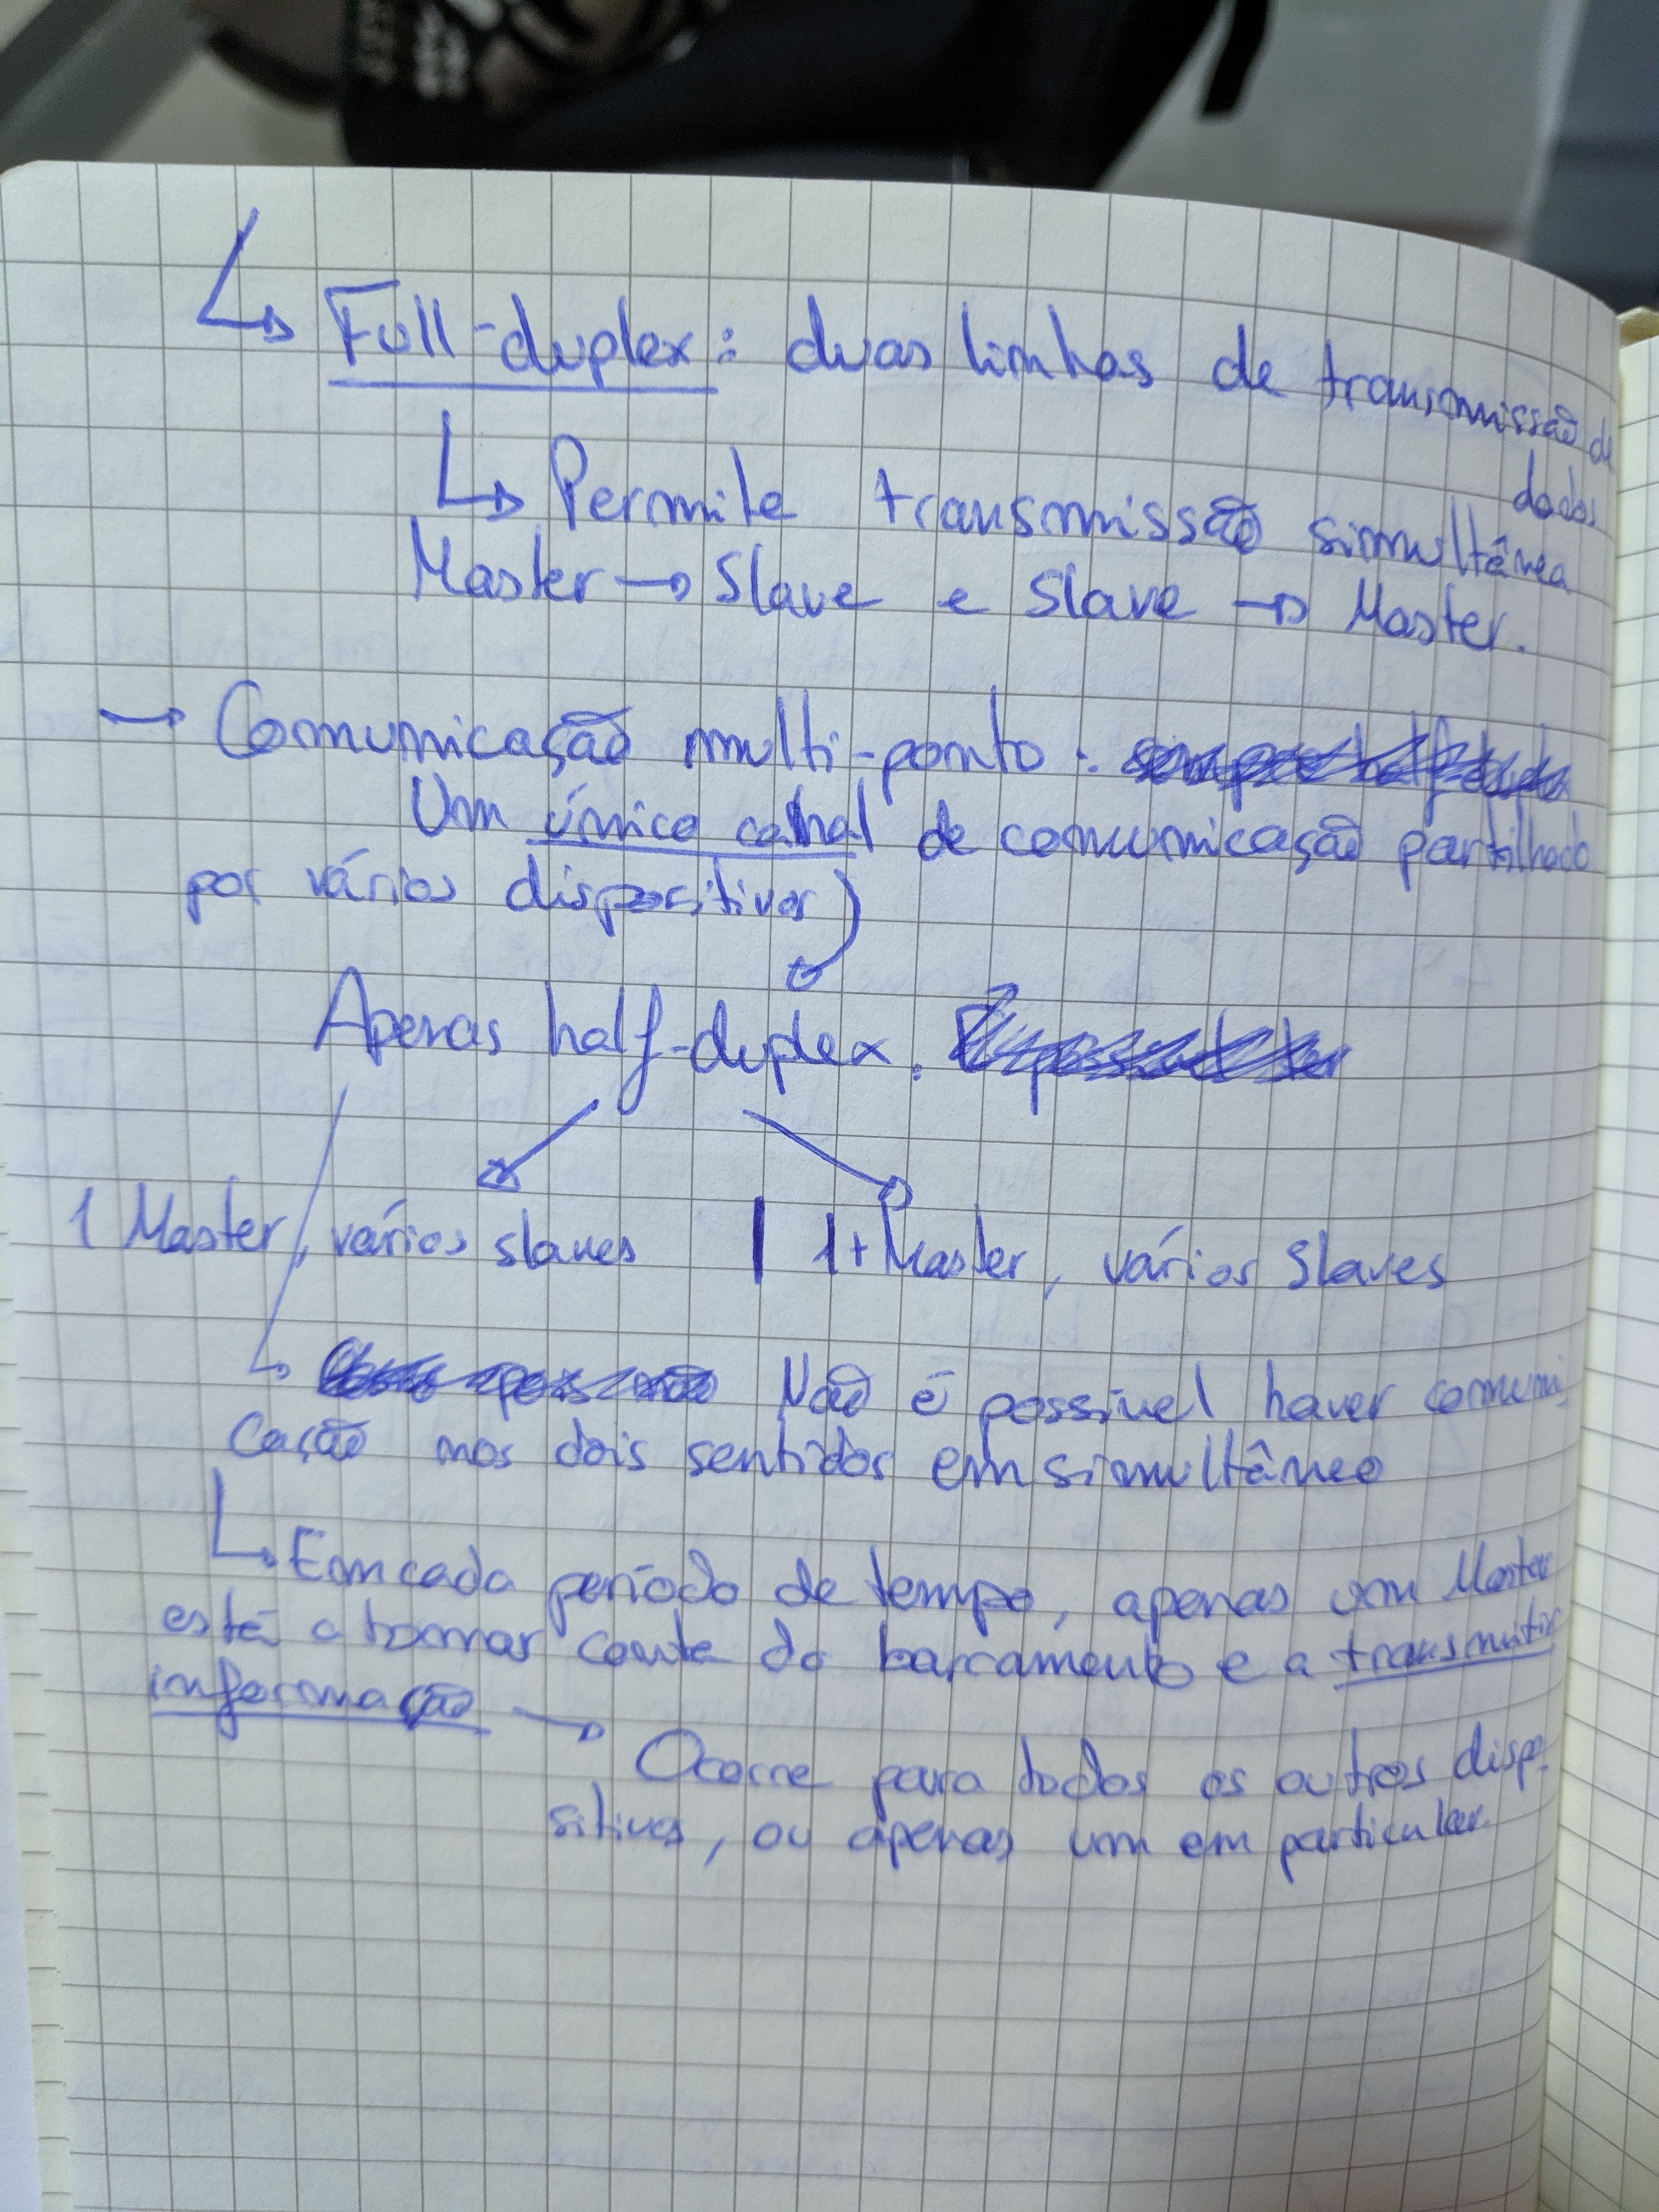 ↳ Full-duplex: duas linhas de transmissão de
dados
↳ Permite transmissão simultânea
Master → Slave e Slave → Master.
→ Comunicação multi-ponto:
Um único canal de comunicação partilhado
por vários dispositivos
Apenas half-duplex.
1 Master, vários slaves | 1+ Master, vários Slaves
↳ Não é possível haver comuni
cação nos dois sentidos em simultâneo
↳ Em cada período de tempo, apenas um Master
está a tomar conta do barramento e a transmitir
informação → Ocorre para todos os outros dispo-
sitivos, ou apenas um em particular.